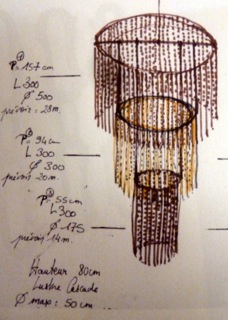 P① = 157 cm
L 300
Ø 500
prévoir : 28m.
P② = 94cm
L 300
Ø 300
prévoir 20m.
P③ = 55cm
L 300
Ø 175
prévoir 14m.
Hauteur 80cm
Lustre Cascade
Ø max : 50cm